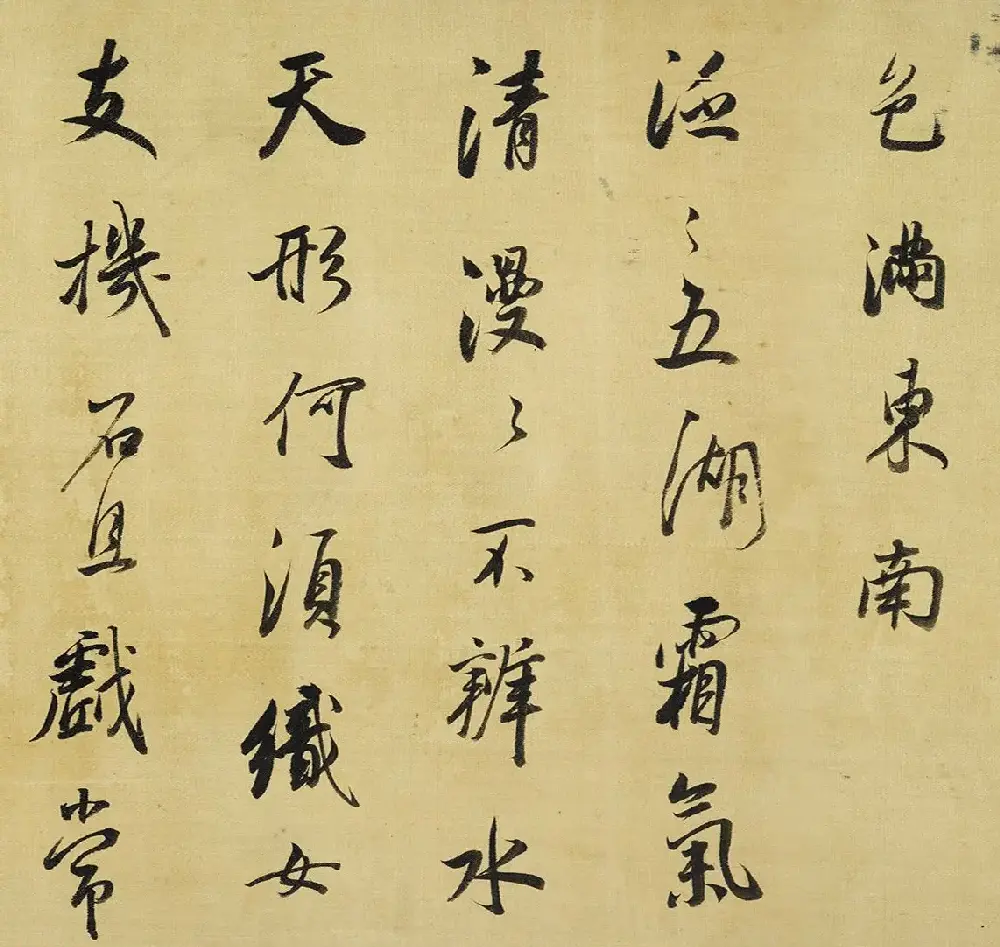 色滿東南
泛〻五湖霜氣
清漫〻不辨水
天形何須織女
支機石且戲常